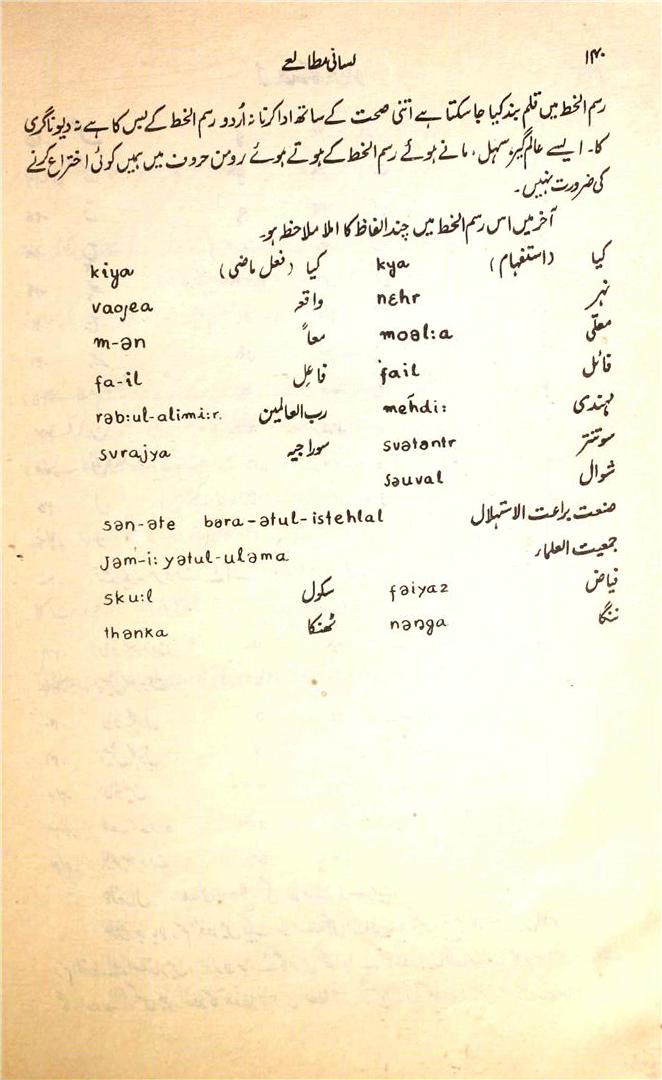 ۱۴۰ لسانی مطالعے
رسم الخط میں قلم بند کیا جا سکتا ہے اتنی صحت کے ساتھ ادا کرنا نہ اُردو رسم الخط کے بس کا ہے نہ دیوناگری
کا۔ ایسے عالم گیر، سہل، مانے ہوئے رسم الخط کے ہوتے ہوئے رومن حروف میں ہمیں کوئی اختراع کرنے
کی ضرورت نہیں۔
آخر میں اس رسم الخط میں چند الفاظ کا املا ملاحظہ ہو۔
کیا (استفہام) kya کیا (فعل ماضی) kiya
نہر nɛhr واقعہ vaqea
معلّی moəl:a معاً m-ən
قائل fail فاعِل fa-il
مہندی mɛ̃hdi: رب العالمین rəb:ul-alimi:r.
سوتنتر svətəntr سوراجیہ svrajya
شوال ʃəuval
صنعت براعت الاستہلال sən-əte bəra-ətul-istehlal
جمعیت العلماء ɟəm-i:yətul-uləma
فیاض fəiyaz سکول sku:l
ننگا nəŋga ٹھنکا thənka